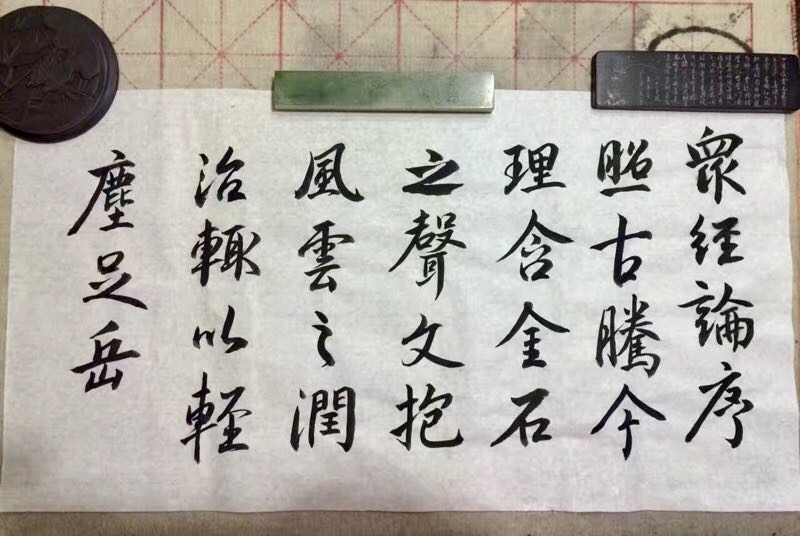 衆经論序
照古騰今
理含金石
之聲文抱
風雲之潤
治輙以輕
塵足岳